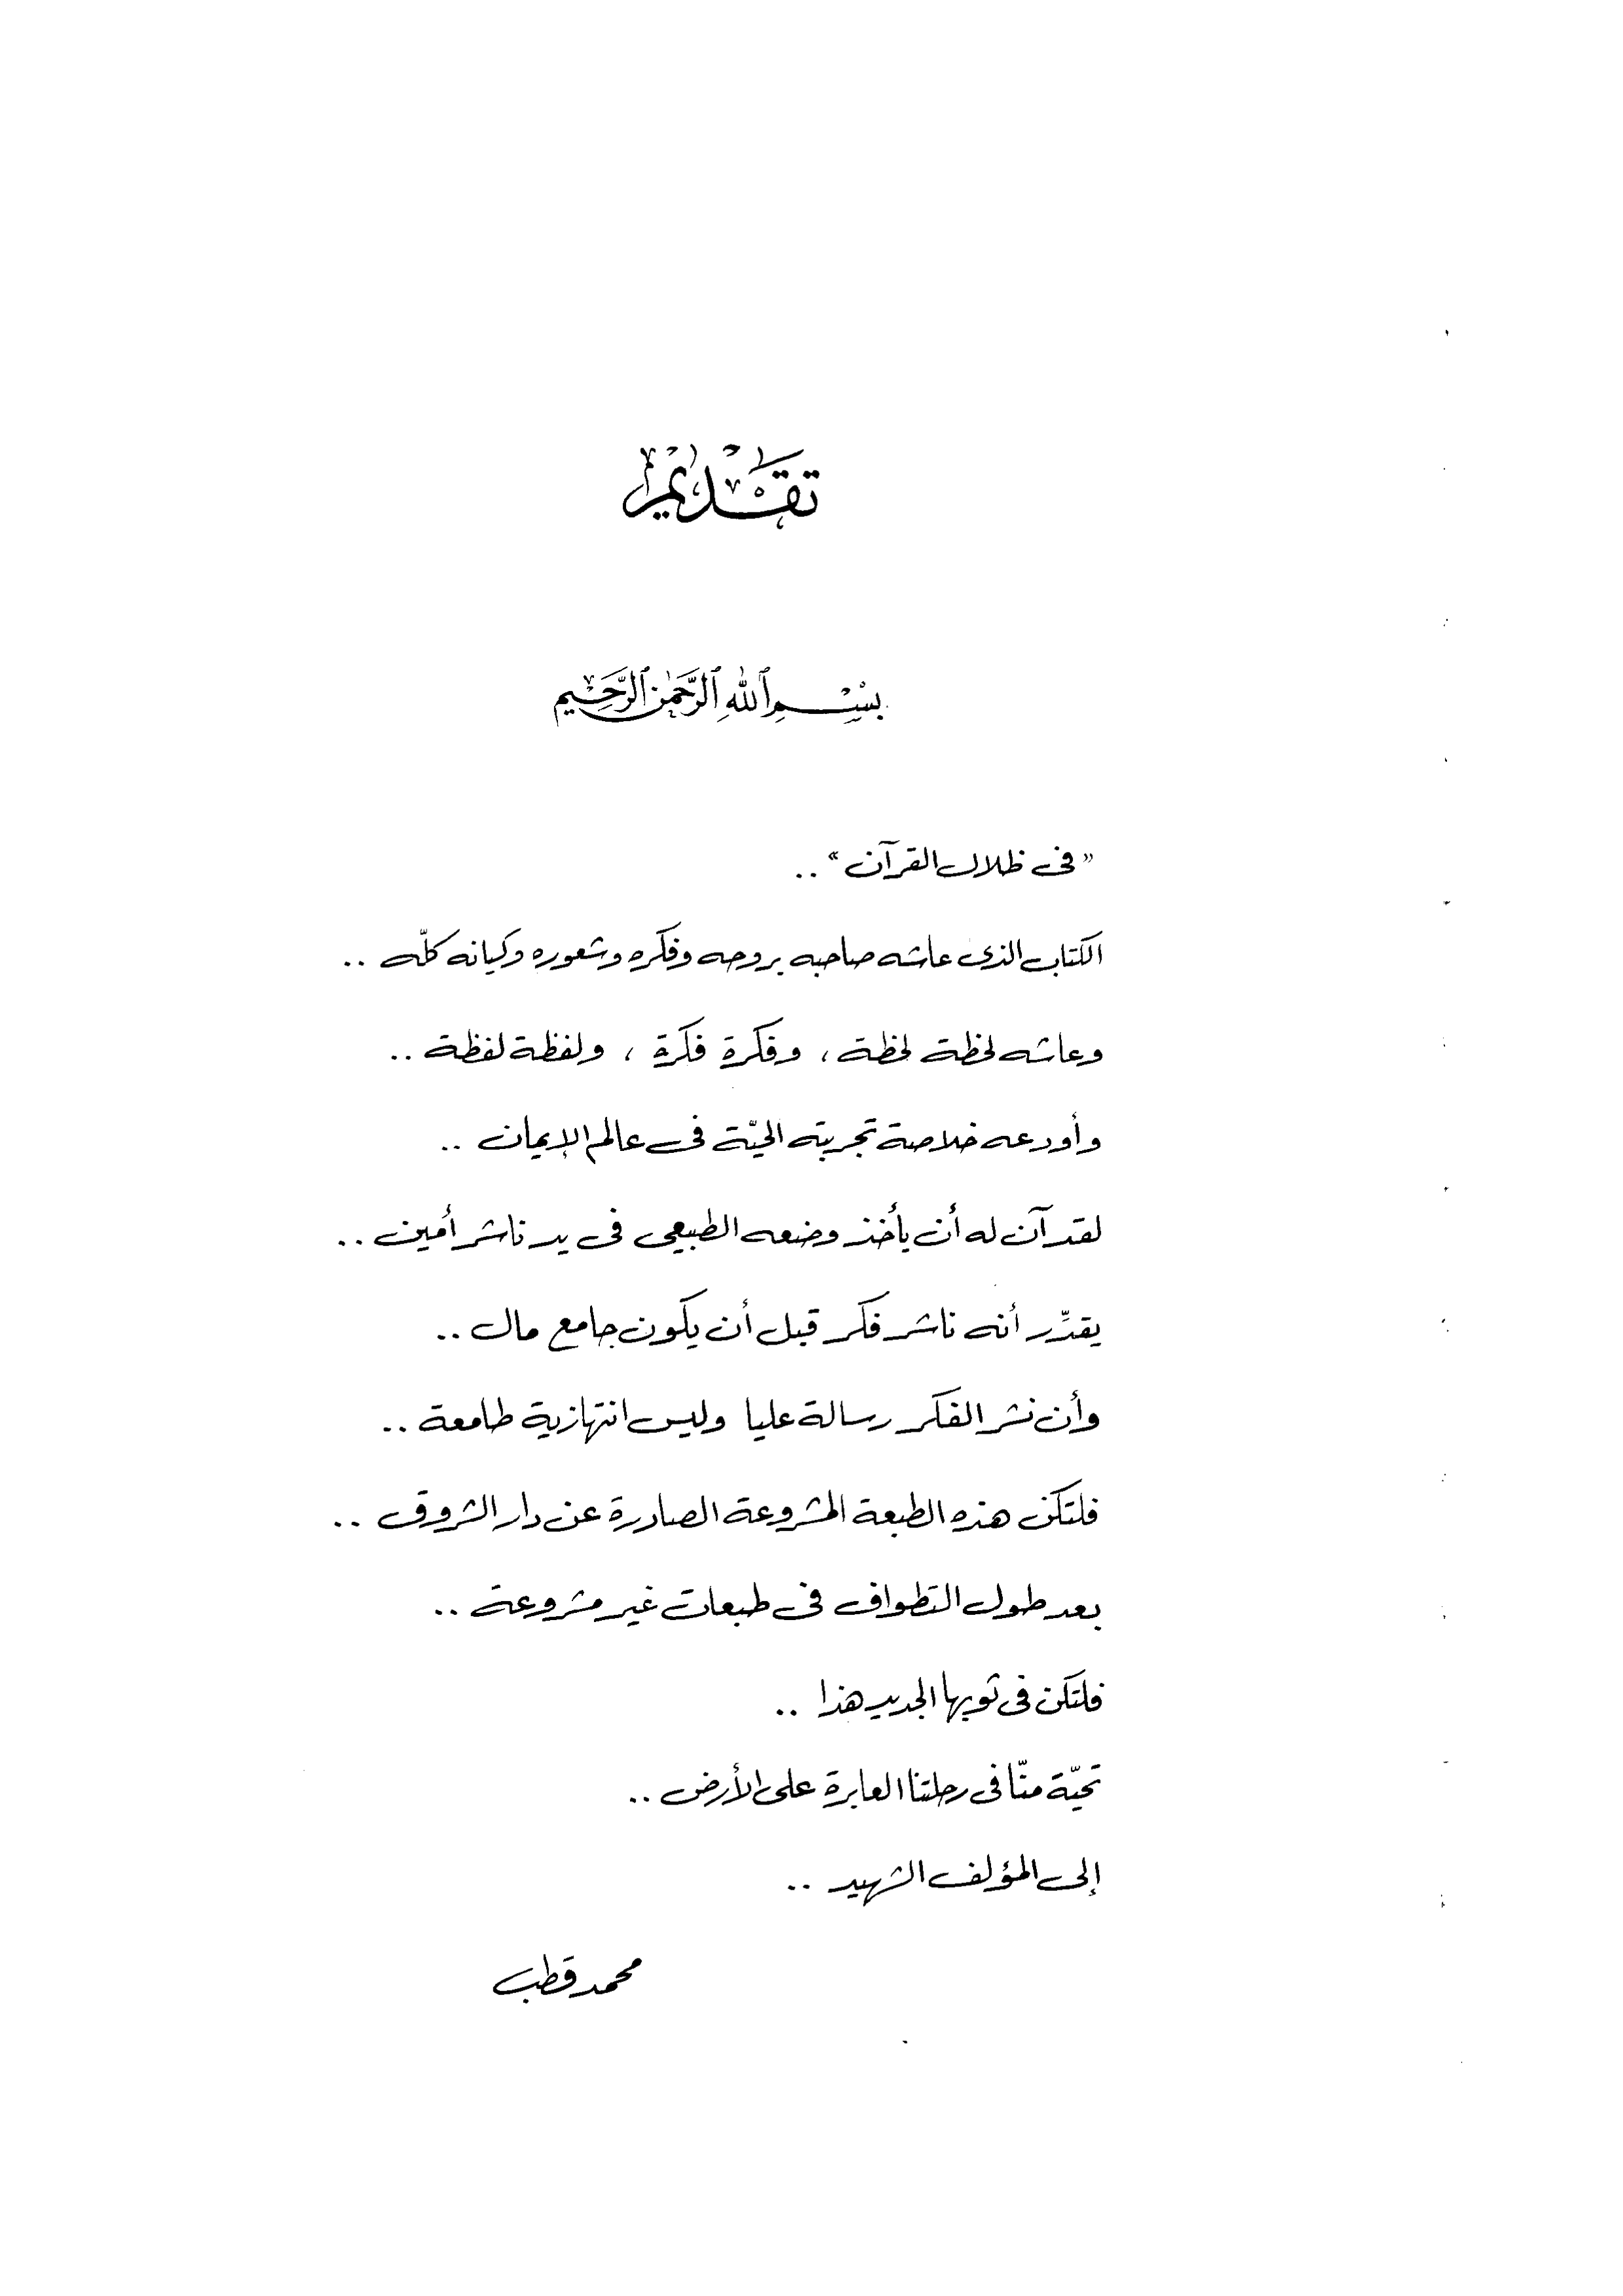 تقديم
بسم الله الرحمن الرحيم
" فى ظلال القرآن " ..
الكتاب الذى عاشه صاحبه بروحه وفكره وشعوره وكيانه كلّه ..
وعاشه لحظة لحظة ، وفكرة فكرة ، ولفظة لفظة ..
وأودعه خلاصة تجربته الحيّة فى عالم الإيمان ..
لقد آن له أن يأخذ وضعه الطبيعى فى يد ناشر أمين ..
يقدِّر أنه ناشر فكر قبل أن يكون جامع مال ..
وأن نشر الفكر رسالة عليا وليس انتهازية طامعة ..
فلتكن هذه الطبعة المشروعة الصادرة عن دار الشروق ..
بعد طول التطواف فى طبعات غير مشروعة ..
فلتكن فى ثوبها الجديد هذا ..
تحيّة منّا فى رحلتنا العابرة على الأرض ..
إلى المؤلف الشهيد ..
محمد قطب